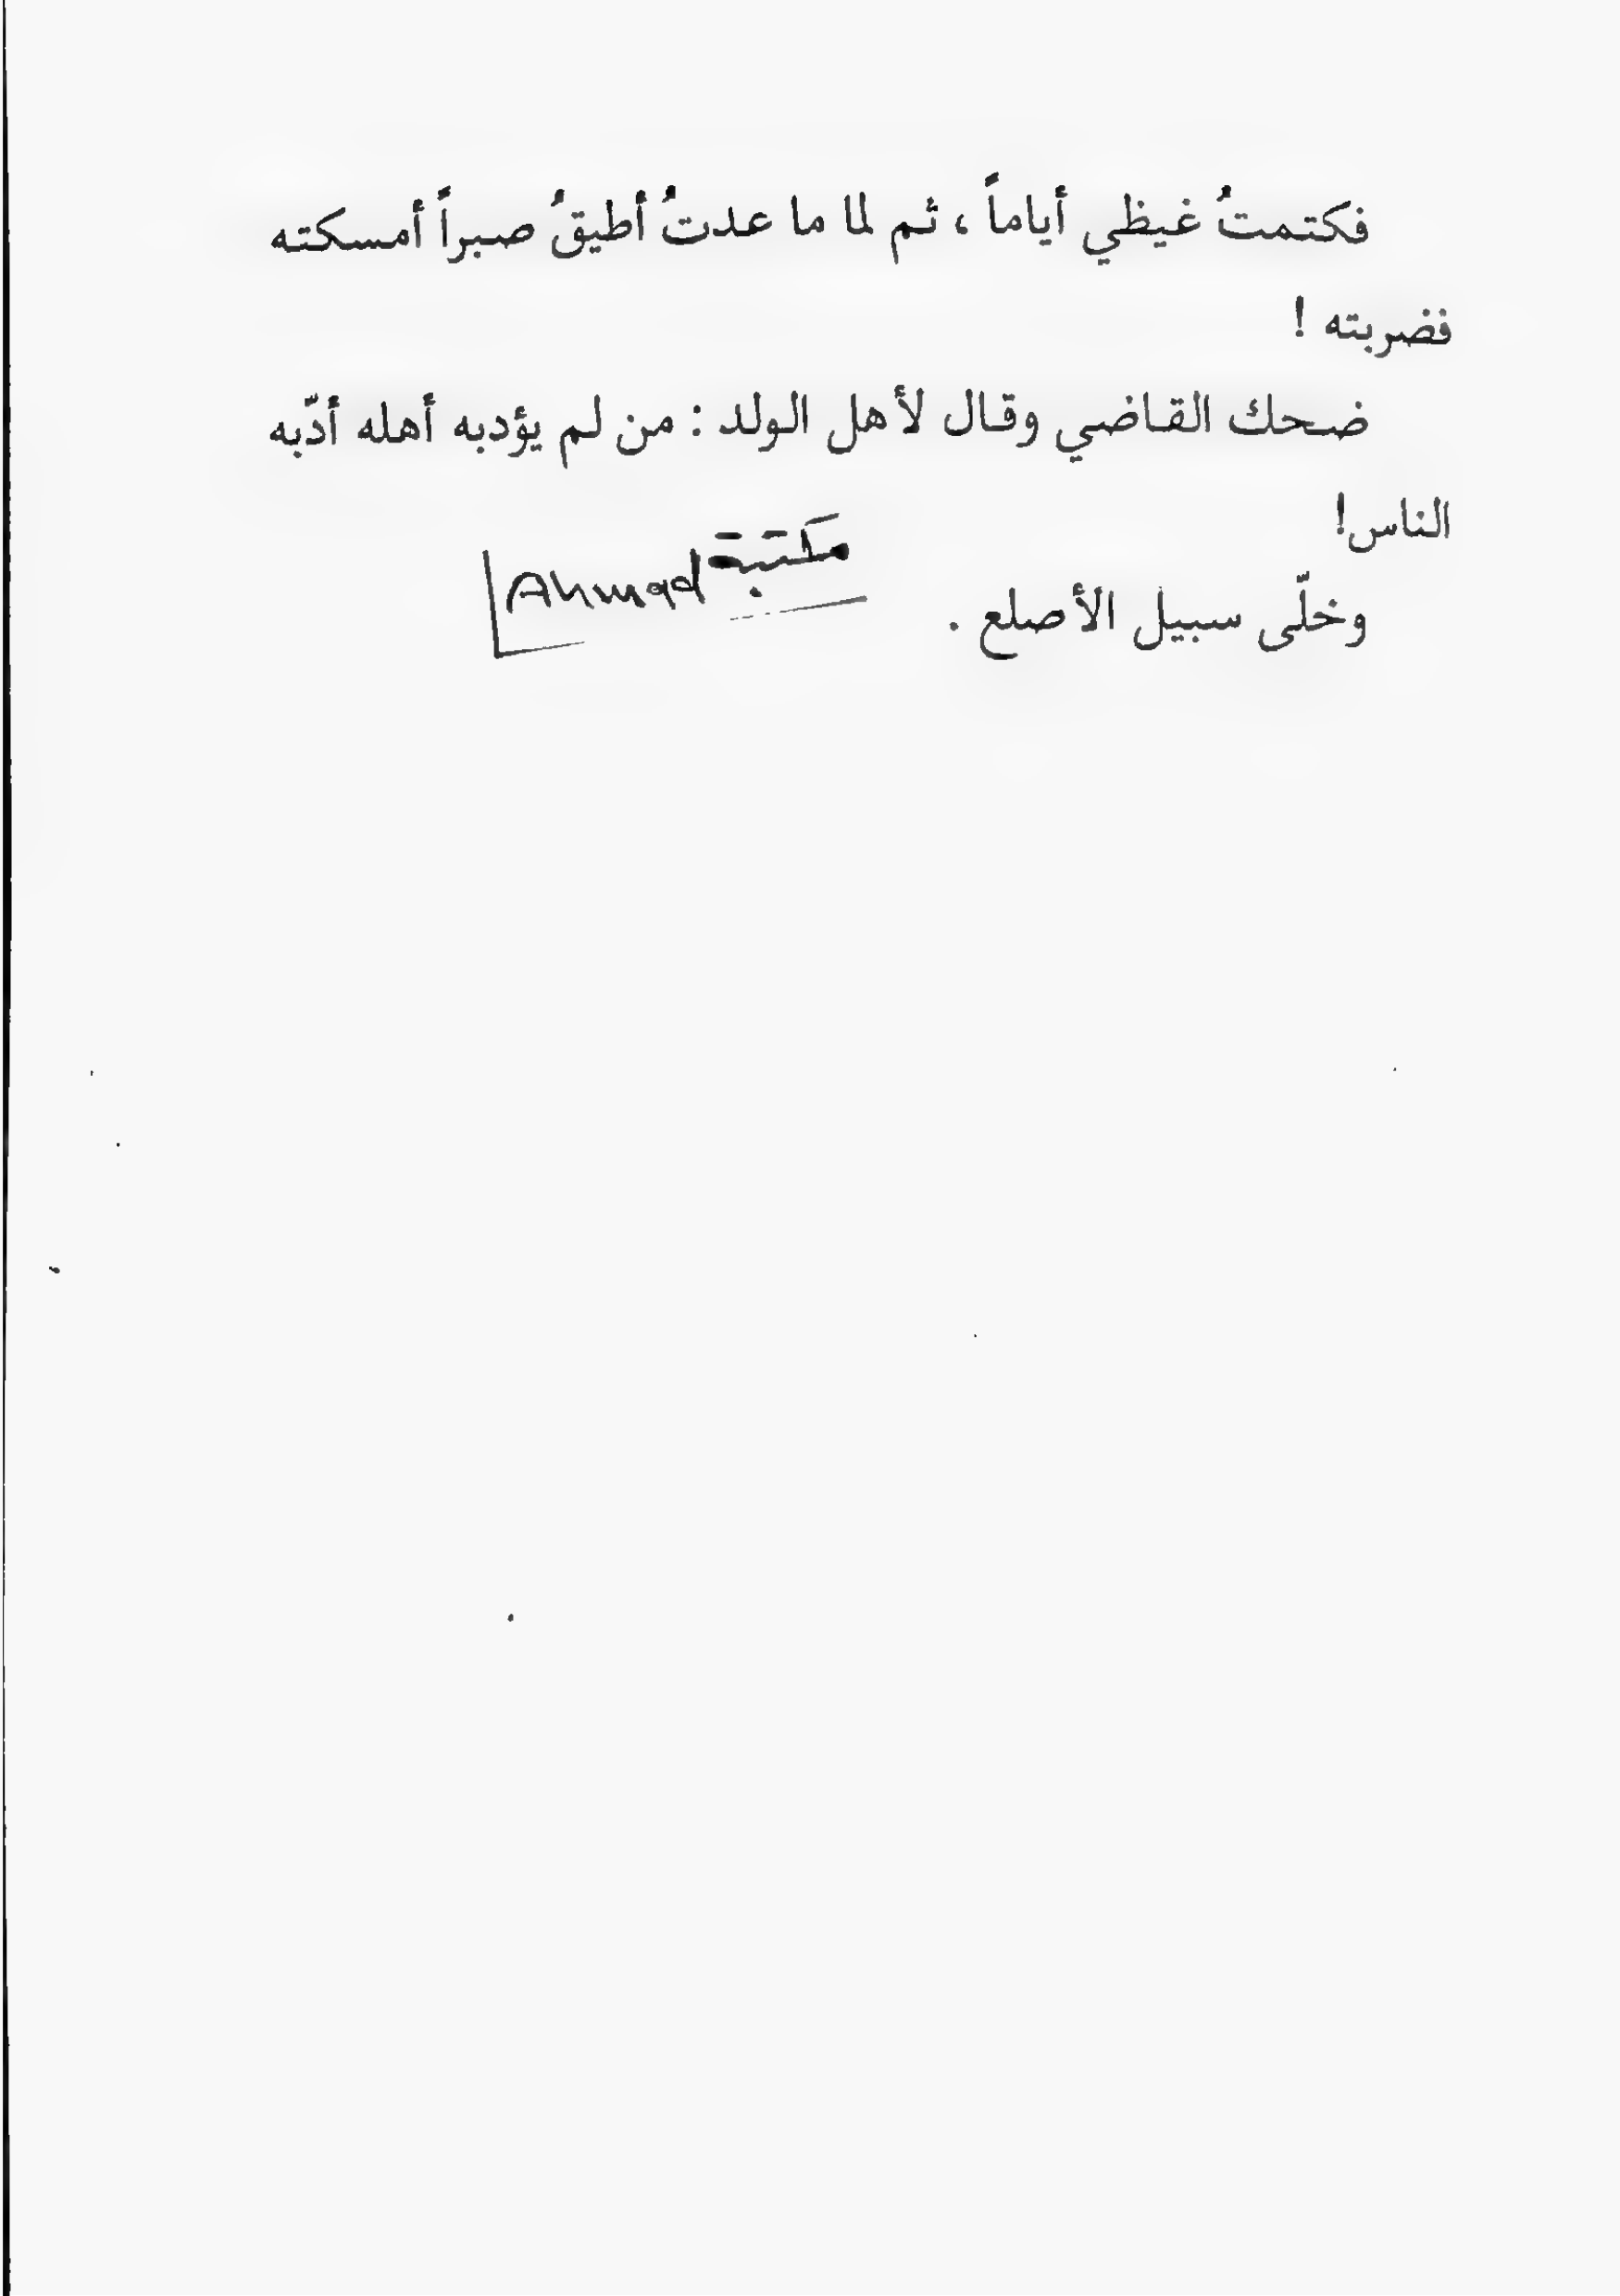 فكتمتُ غيظي أياماً ، ثم لما ما عدتُ أطيقُ صبراً أمسكته
فضربته !
ضحك القاضي وقال لأهل الولد : من لم يؤدبه أهله أدّبه
الناس!
وخلّى سبيل الأصلع .
مكتبة Ahmad